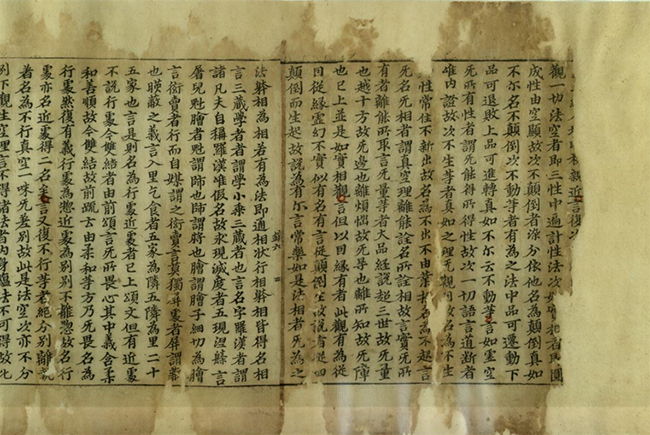 親近
觀一切法空者即三性中遍計性法次如實相者即圓
成性由空顯故次不顛倒者染分依他名為顛倒真如
不尔名不顛倒次不動等者有為之法中品可遷動下
品可退敗上品可進轉真如不尔云不動等言如虛空
无所有性者謂无能得所得性故次一切語言道斷者
唯內證故次不生等者真如之理无觀因故名為不生
性常住不新出故名為不出不由業招名為不起言
无名无相者謂真空理離能詮名所詮相故言實无所
有者離能所取言无量等者大品經說超三世故无量
也越十方故无邊也離煩惱故无导也離所知故无障
也已上並是如實相觀言但以因緣有者此觀有為從
因從緣虛幻不實似有名有言從顛倒生故說者從四
顛倒而生起故說為有尔言常樂如是法相者无為之
法斯相為相若有為法即適相狀行相斯相皆得名相
言三藏學者者謂學小乘三藏者也言名字羅漢者謂
諸凡夫自稱羅漢唯假名故求現滅度者五現涅槃言
屠兒魁膾者魁謂師也帥謂將也膾謂膾子細切為膾
言衒賣者行而自媒謂之衒賣言莫獨屏處者屏謂蔽
也睽蔽之義言入里乞食者五家為隣五隣為里二十
五家也言是則名為行處近處者已上頌文但有近處
不說行處今雙結者由前頌言无所畏心其中義含柔
和善順故今雙結故前疏云由柔和等方乃无畏名為
行處然復有義行處為總近處為別別不離總故名行
處亦名近處得二名言又復不行等者絕分別離說
著名為不行真空一味无差別故此是法空次亦不分
別下觀生空理言不得諸法者內身蘊法不可得故此